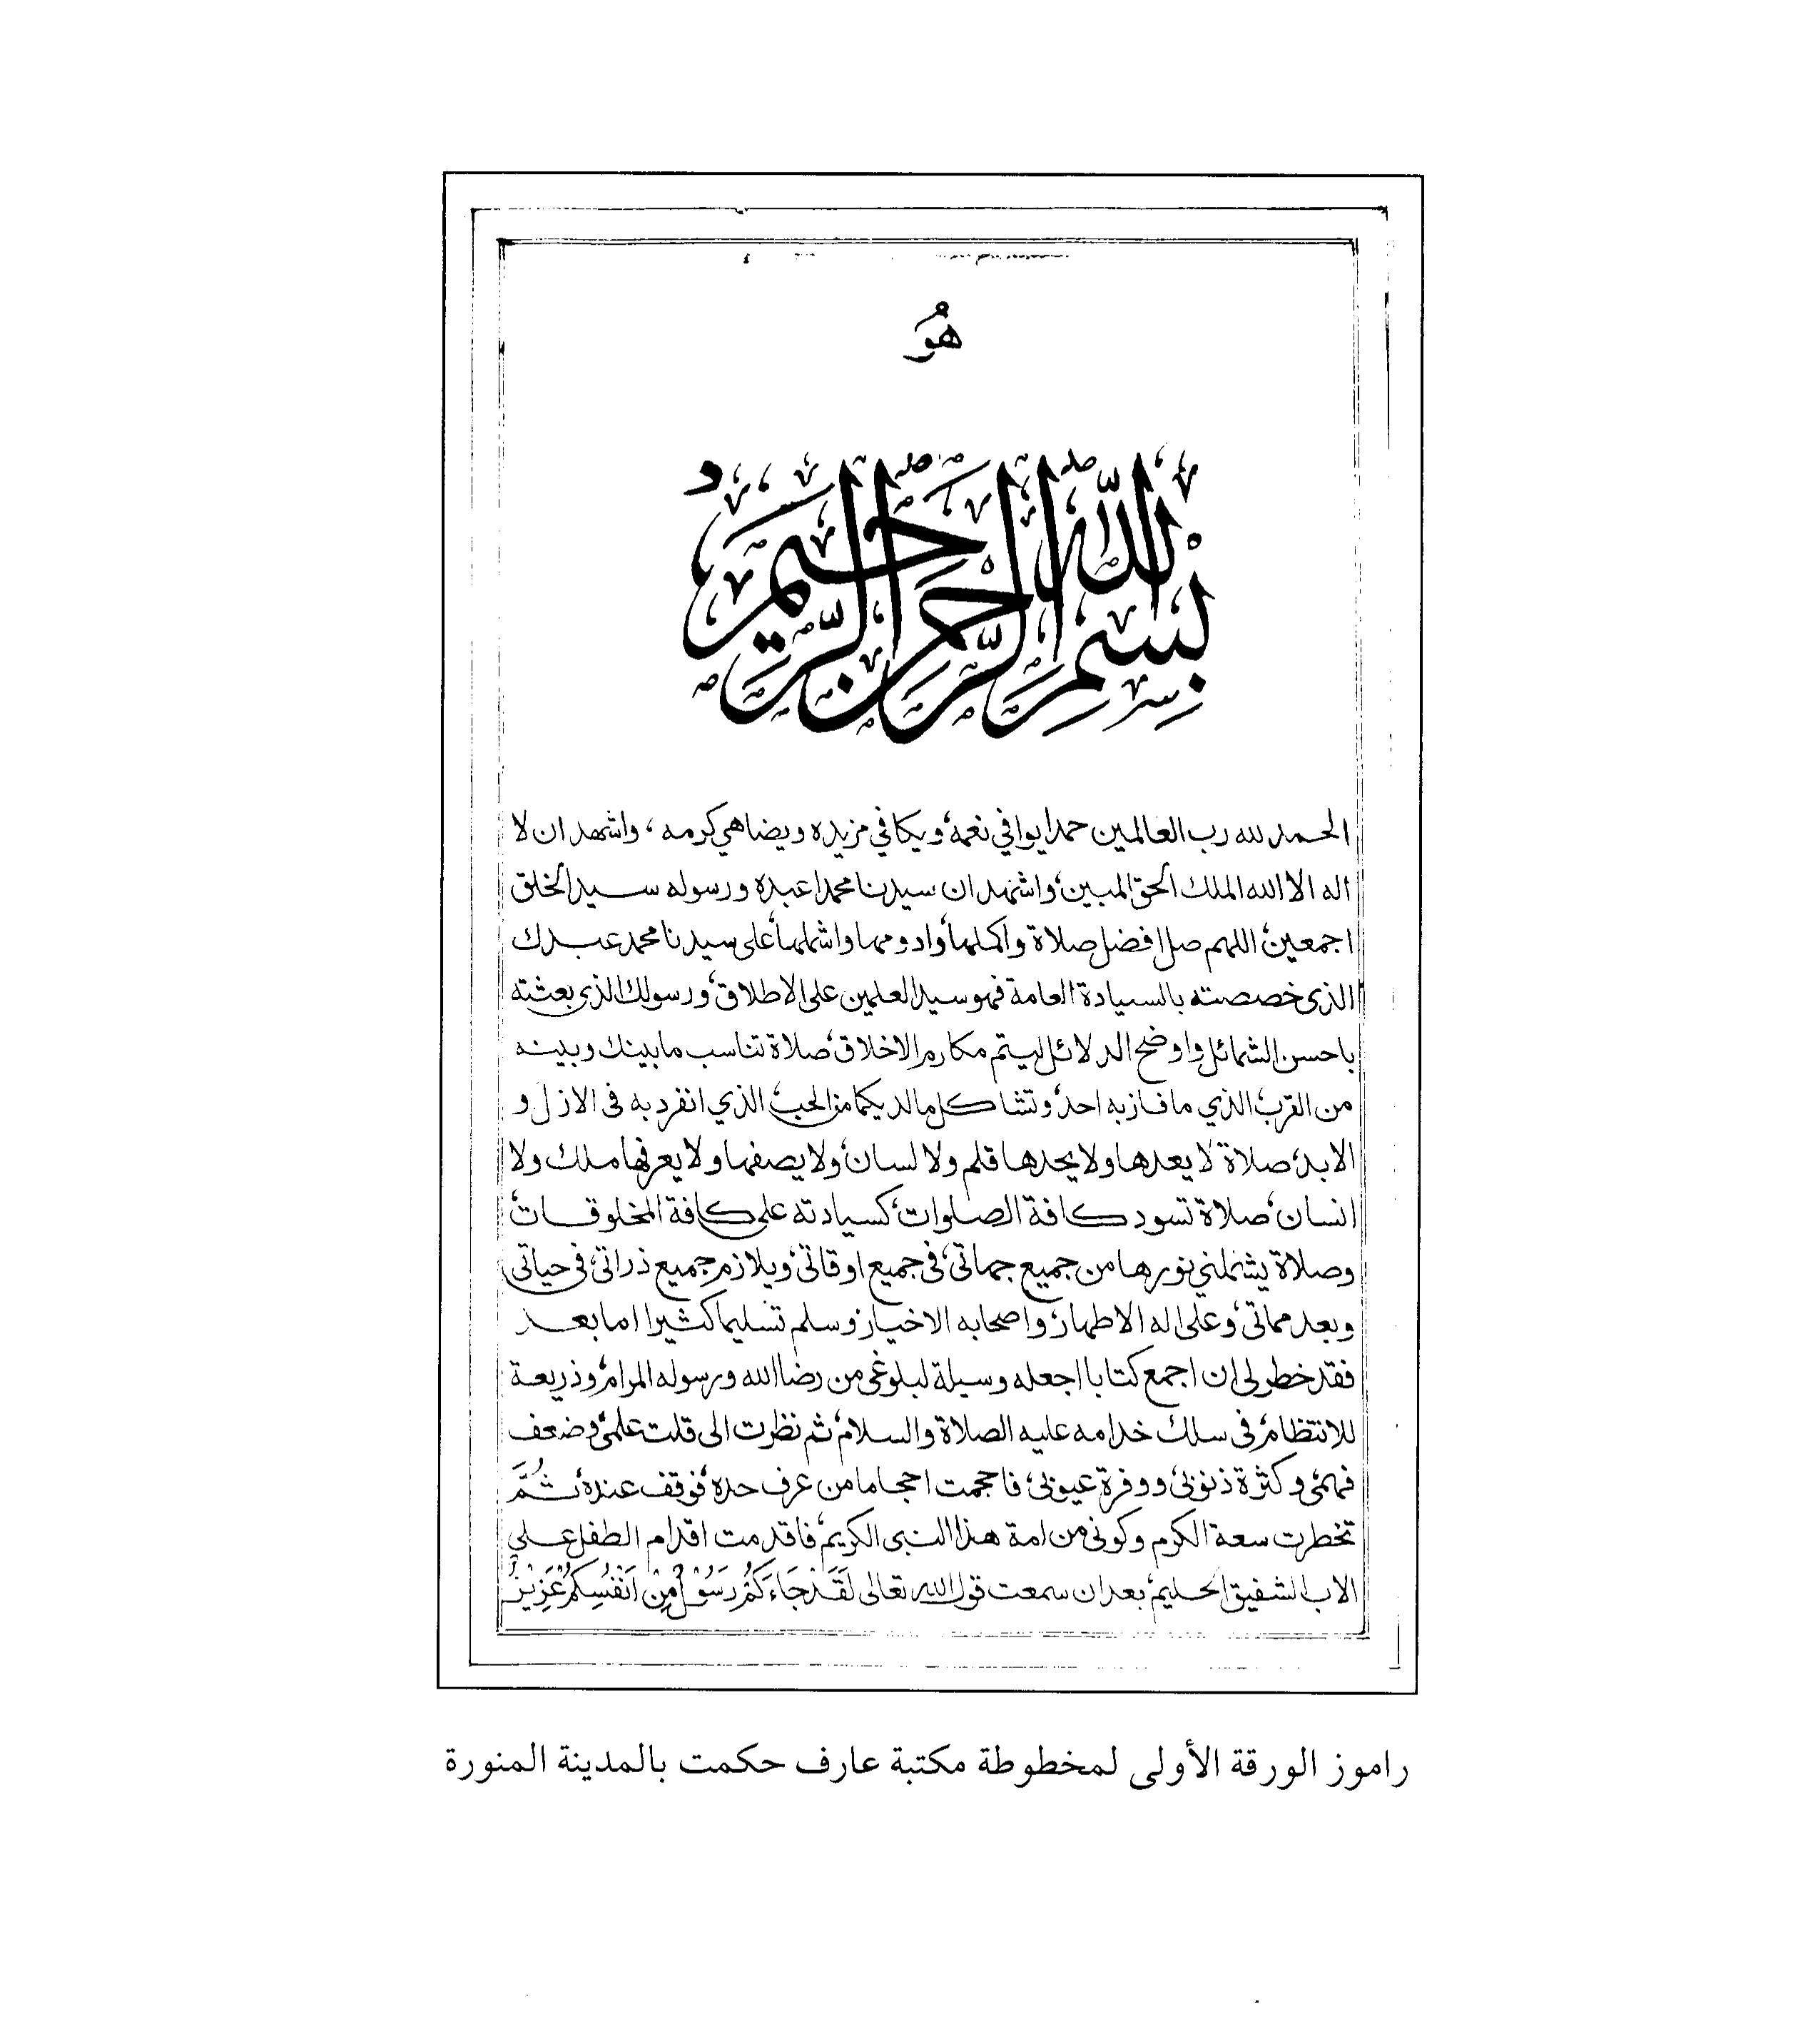 هُوَ
بِسْمِ اللَّهِ الرَّحْمَنِ الرَّحِيمِ
الحمد لله رب العالمين حمدا يوافي نعمه ويكافي مزيده ويضاهي كرمه، واشهد ان لا
اله الا الله الملك الحق المبين، واشهد ان سيدنا محمدا عبده ورسوله سيد الخلق
اجمعين، اللهم صل افضل صلاة واكملها، وادومها واشملها، على سيدنا محمد عبدك
الذى خصصته بالسيادة العامة فهو سيد العلمين على الاطلاق، ورسولك الذى بعثته
باحسن الشمائل واوضح الدلائل ليتم مكارم الاخلاق، صلاة تناسب مابينك وبينه
من القرب الذي ما فاز به احد، وتشاكل مالديكما من الحب، الذي انفرد به فى الازل و
الابد، صلاة لا يعدها ولا يحدها قلم ولا لسان، ولا يصفها ولا يعرفها ملك ولا
انسان، صلاة تسود كافة الصلوات، كسيادته على كافة المخلوقات،
وصلاة يشملني نورها من جميع جهاتى، فى جميع اوقاتى، ويلازم جميع ذراتى، فى حياتى
وبعد مماتى، وعلى اله الاطهار، واصحابه الاخيار، وسلم تسليما كثيرا اما بعد
فقد خطر لى ان اجمع كتابا اجعله وسيلة لبلوغى من رضا الله ورسوله المرام، وذريعة
للانتظام، فى سلك خدامه عليه الصلاة والسلام، ثم نظرت الى قلت علمى، وضعف
فهمى، وكثرة ذنوبى، ووفرة عيوبى، فاحجمت احجاما من عرف حده، فوقف عنده، ثُمَّ
تخطرت سعة الكرم وكونى من امة هذا النبى الكريم، فاقدمت اقدام الطفل على
الاب الشفيق الحليم، بعد ان سمعت قول الله تعالى لَقَدْ جَاءَكُمْ رَسُوْلٌ مِنْ اَنْفُسِكُمْ عَزِيْزٌ
راموز الورقة الأولى لمخطوطة مكتبة عارف حكمت بالمدينة المنورة